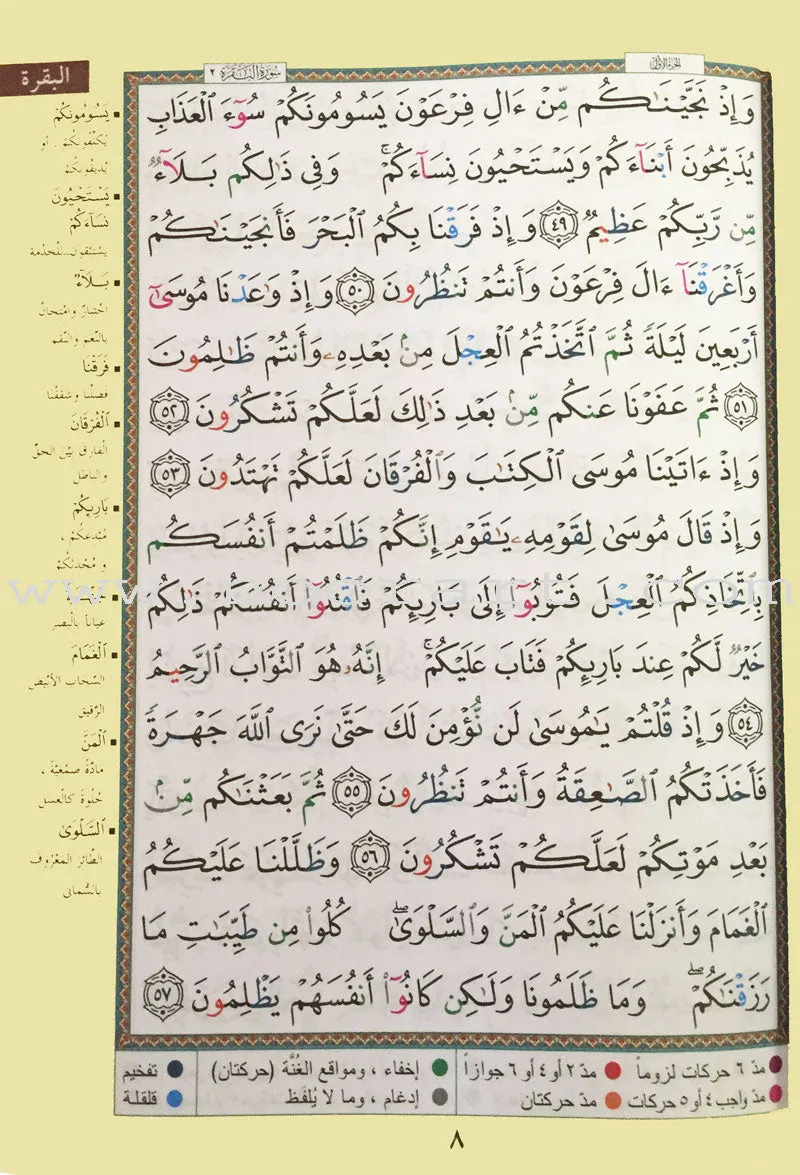 الجزء الأول
سُورَةُ البَقَرَةِ ٢
البقرة
وَإِذْ نَجَّيْنَـٰكُم مِّنْ ءَالِ فِرْعَوْنَ يَسُومُونَكُمْ سُوٓءَ ٱلْعَذَابِ
يُذَبِّحُونَ أَبْنَآءَكُمْ وَيَسْتَحْيُونَ نِسَآءَكُمْ ۚ وَفِى ذَٰلِكُم بَلَآءٌ
مِّن رَّبِّكُمْ عَظِيمٌ ٤٩ وَإِذْ فَرَقْنَا بِكُمُ ٱلْبَحْرَ فَأَنجَيْنَـٰكُمْ
وَأَغْرَقْنَآ ءَالَ فِرْعَوْنَ وَأَنتُمْ تَنظُرُونَ ٥٠ وَإِذْ وَٰعَدْنَا مُوسَىٰٓ
أَرْبَعِينَ لَيْلَةً ثُمَّ ٱتَّخَذْتُمُ ٱلْعِجْلَ مِنۢ بَعْدِهِۦ وَأَنتُمْ ظَـٰلِمُونَ
٥١ ثُمَّ عَفَوْنَا عَنكُم مِّنۢ بَعْدِ ذَٰلِكَ لَعَلَّكُمْ تَشْكُرُونَ ٥٢
وَإِذْ ءَاتَيْنَا مُوسَى ٱلْكِتَـٰبَ وَٱلْفُرْقَانَ لَعَلَّكُمْ تَهْتَدُونَ ٥٣
وَإِذْ قَالَ مُوسَىٰ لِقَوْمِهِۦ يَـٰقَوْمِ إِنَّكُمْ ظَلَمْتُمْ أَنفُسَكُم
بِٱتِّخَاذِكُمُ ٱلْعِجْلَ فَتُوبُوٓا۟ إِلَىٰ بَارِئِكُمْ فَٱقْتُلُوٓا۟ أَنفُسَكُمْ ذَٰلِكُمْ
خَيْرٌ لَّكُمْ عِندَ بَارِئِكُمْ فَتَابَ عَلَيْكُمْ ۚ إِنَّهُۥ هُوَ ٱلتَّوَّابُ ٱلرَّحِيمُ
٥٤ وَإِذْ قُلْتُمْ يَـٰمُوسَىٰ لَن نُّؤْمِنَ لَكَ حَتَّىٰ نَرَى ٱللَّهَ جَهْرَةً
فَأَخَذَتْكُمُ ٱلصَّـٰعِقَةُ وَأَنتُمْ تَنظُرُونَ ٥٥ ثُمَّ بَعَثْنَـٰكُم مِّنۢ
بَعْدِ مَوْتِكُمْ لَعَلَّكُمْ تَشْكُرُونَ ٥٦ وَظَلَّلْنَا عَلَيْكُمُ
ٱلْغَمَامَ وَأَنزَلْنَا عَلَيْكُمُ ٱلْمَنَّ وَٱلسَّلْوَىٰ ۖ كُلُوا۟ مِن طَيِّبَـٰتِ مَا
رَزَقْنَـٰكُمْ ۖ وَمَا ظَلَمُونَا وَلَـٰكِن كَانُوٓا۟ أَنفُسَهُمْ يَظْلِمُونَ ٥٧
يَسُومُونَكُمْ
يُكَلِّفُونَكُمْ ، أو
يُذِيقُونَكُمْ
يَسْتَحْيُونَ
نِسَآءَكُمْ
يَسْتَبْقُون للخدمة
بَلَآءٌ
اختبارٌ وامْتحانٌ
بالنِّعم والنِّقم
فَرَقْنَا
فصلْنا وشقَقْنا
ٱلْفُرْقَانَ
الفارق بيْن الحقِّ
والباطل
بَارِئِكُمْ
مُبْدعكُمْ ،
و مُحْدثكُمْ
عياناً بالبصر
ٱلْغَمَامَ
السَّحاب الأبْيض
الرَّقيق
ٱلْمَنَّ
مادّة صمْغيَّة ،
حُلْوة كالعسل
ٱلسَّلْوَىٰ
الطَّائر المعْرُوف
بالسُّمانى
مدّ ٦ حركات لزوماً
مدّ ٢ أو ٤ أو ٦ جوازاً
إخفاء ، ومواقع الغُنَّة (حركتان)
تفخيم
مدّ واجب ٤ أو ٥ حركات
مدّ حركتان
إدغام ، وما لا يُلفَظ
قلقلة
٨